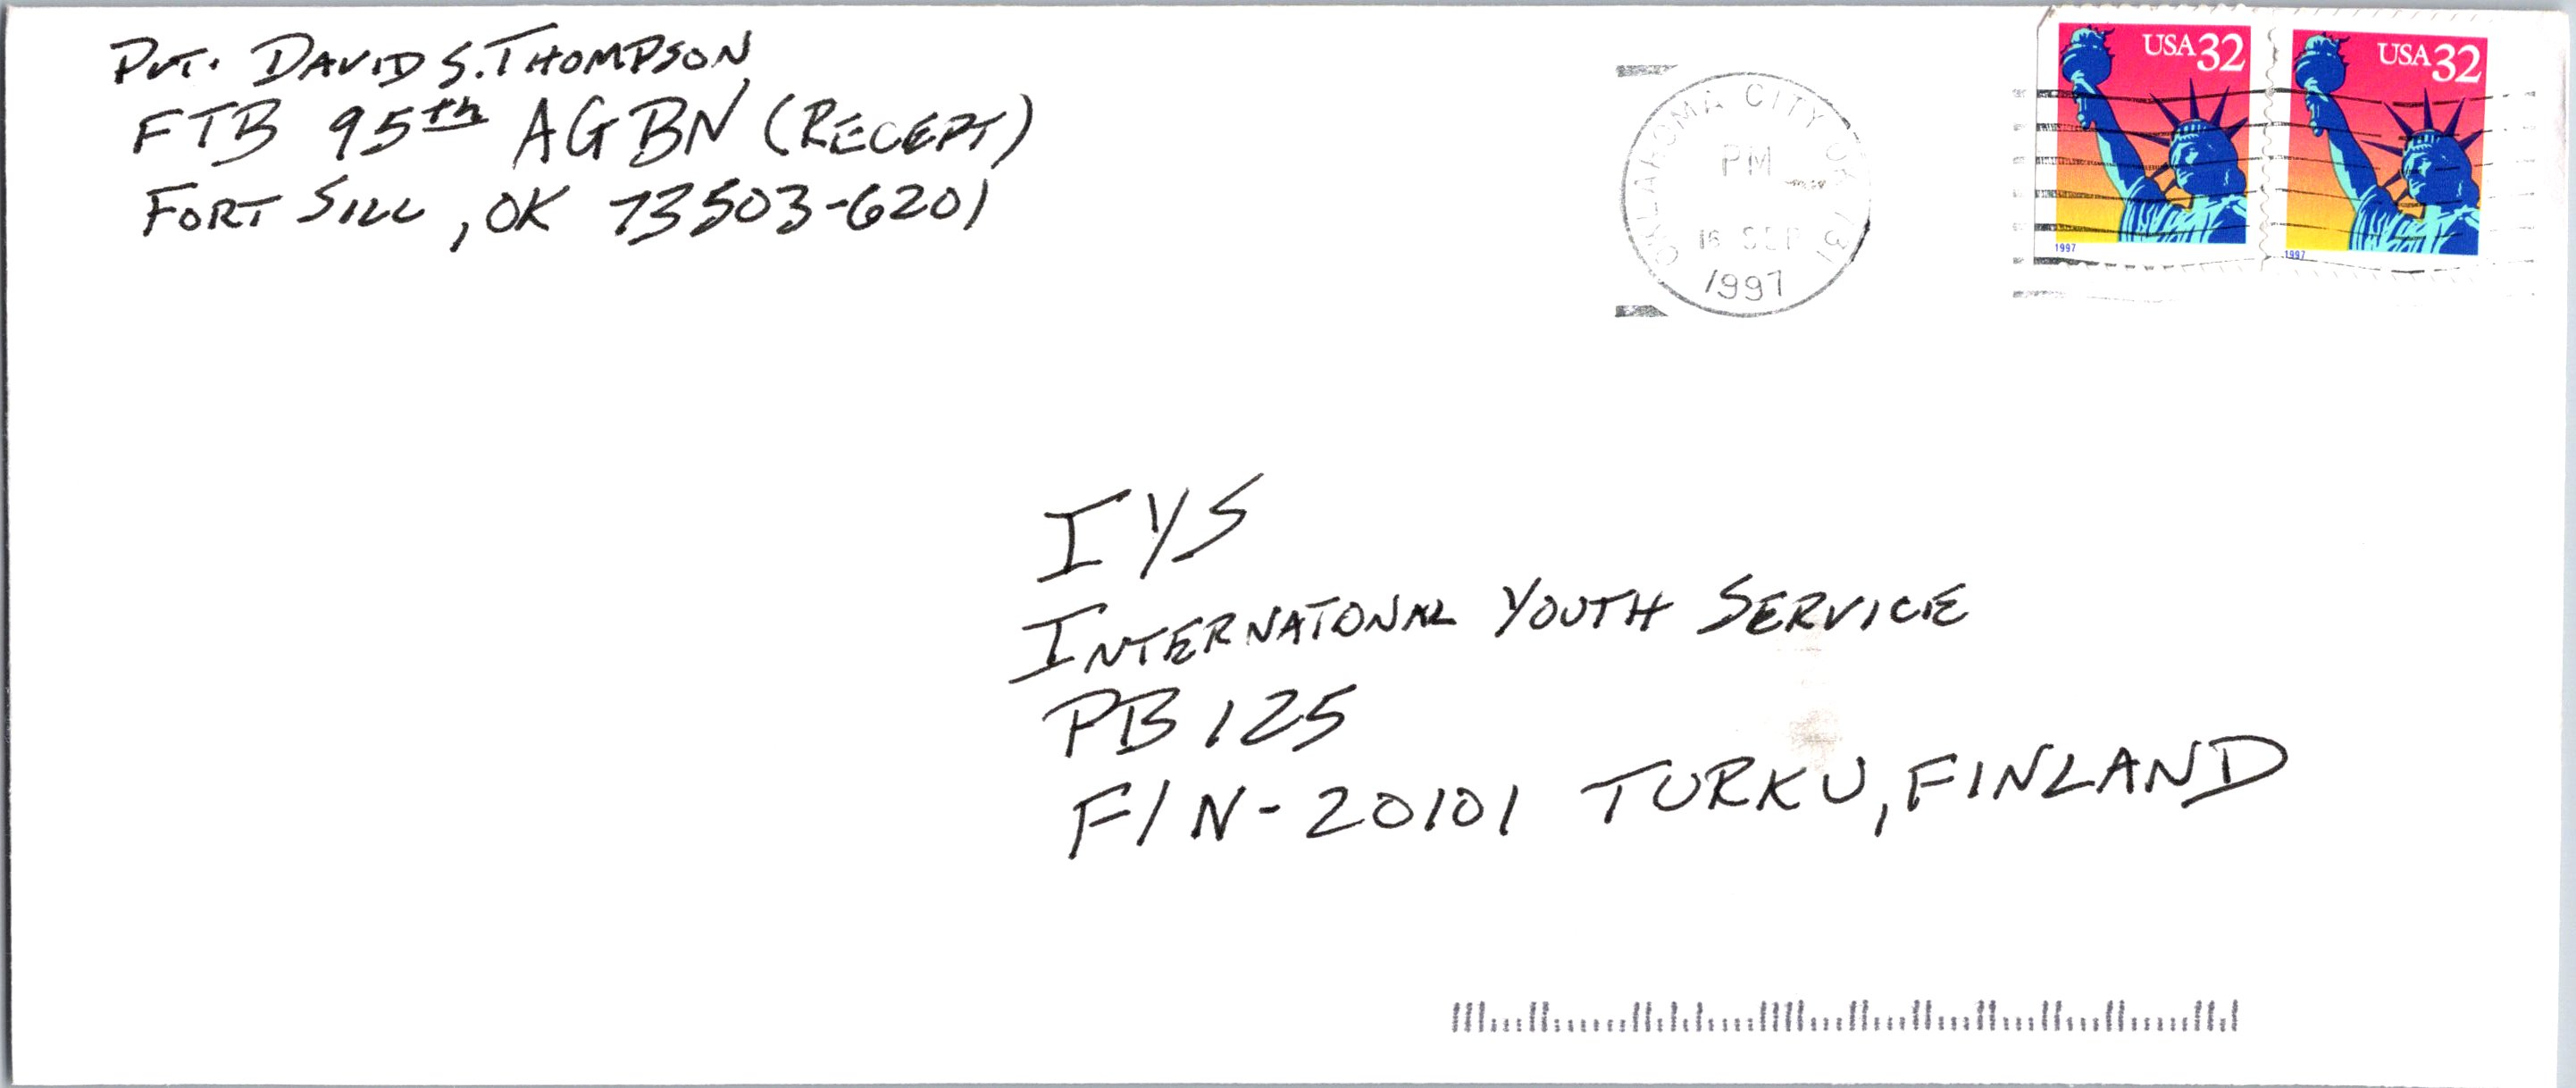 Pvt. David S. Thompson
FTB 95th AG BN (Recept)
Fort Sill, OK 73503-6201
OKLAHOMA CITY OK 731
PM
16 SEP
1997
USA 32
1997
USA 32
1997
IYS
Internatonal Youth Service
PB 125
FIN-20101 TURKU, FINLAND